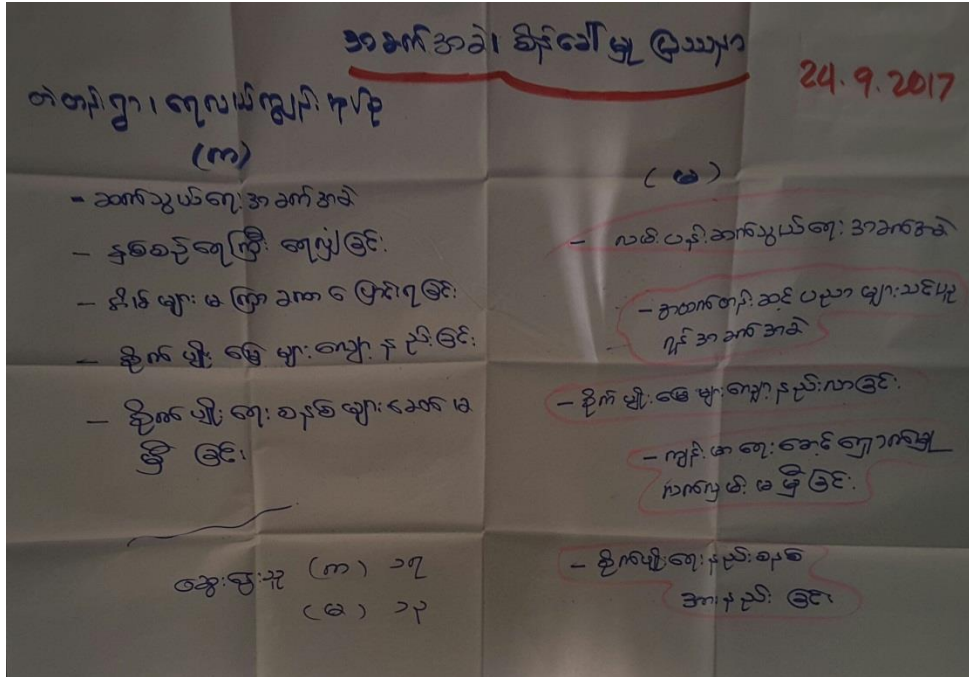 အခက်အခဲ၊ စိန်ခေါ်မှု ပြဿနာ
24.9.2017
တဲတန်းရွာ၊ ရေလယ်ကျွန်းအုပ်စု
(ကာ)
- ဆက်သွယ်ရေးအခက်အခဲ
- နှစ်စဉ်ရေကြီး ရေလျှံခြင်း
- အိမ်များ မကြာခဏ ပြောင်းရခြင်း
- စိုက်ပျိုးမြေများလျော့နည်းခြင်း
- စိုက်ပျိုးရေးစနစ်များခေတ်မ
မှီခြင်း
ဆွေးနွေးသူ (ကာ) ၁၅
(မ) ၁၃
(မ)
- လမ်းပန်းဆက်သွယ်ရေး အခက်အခဲ
- အထက်တန်းဆင့် ပညာများသင်ယူ
ရန် အခက်အခဲ
- စိုက်ပျိုးမြေများလျော့နည်းလာခြင်း
- ကျန်းမာရေးစောင့်ရှောက်မှု
လက်လှမ်းမမှီခြင်း
- စိုက်ပျိုးရေးနည်းစနစ်
အားနည်းခြင်း